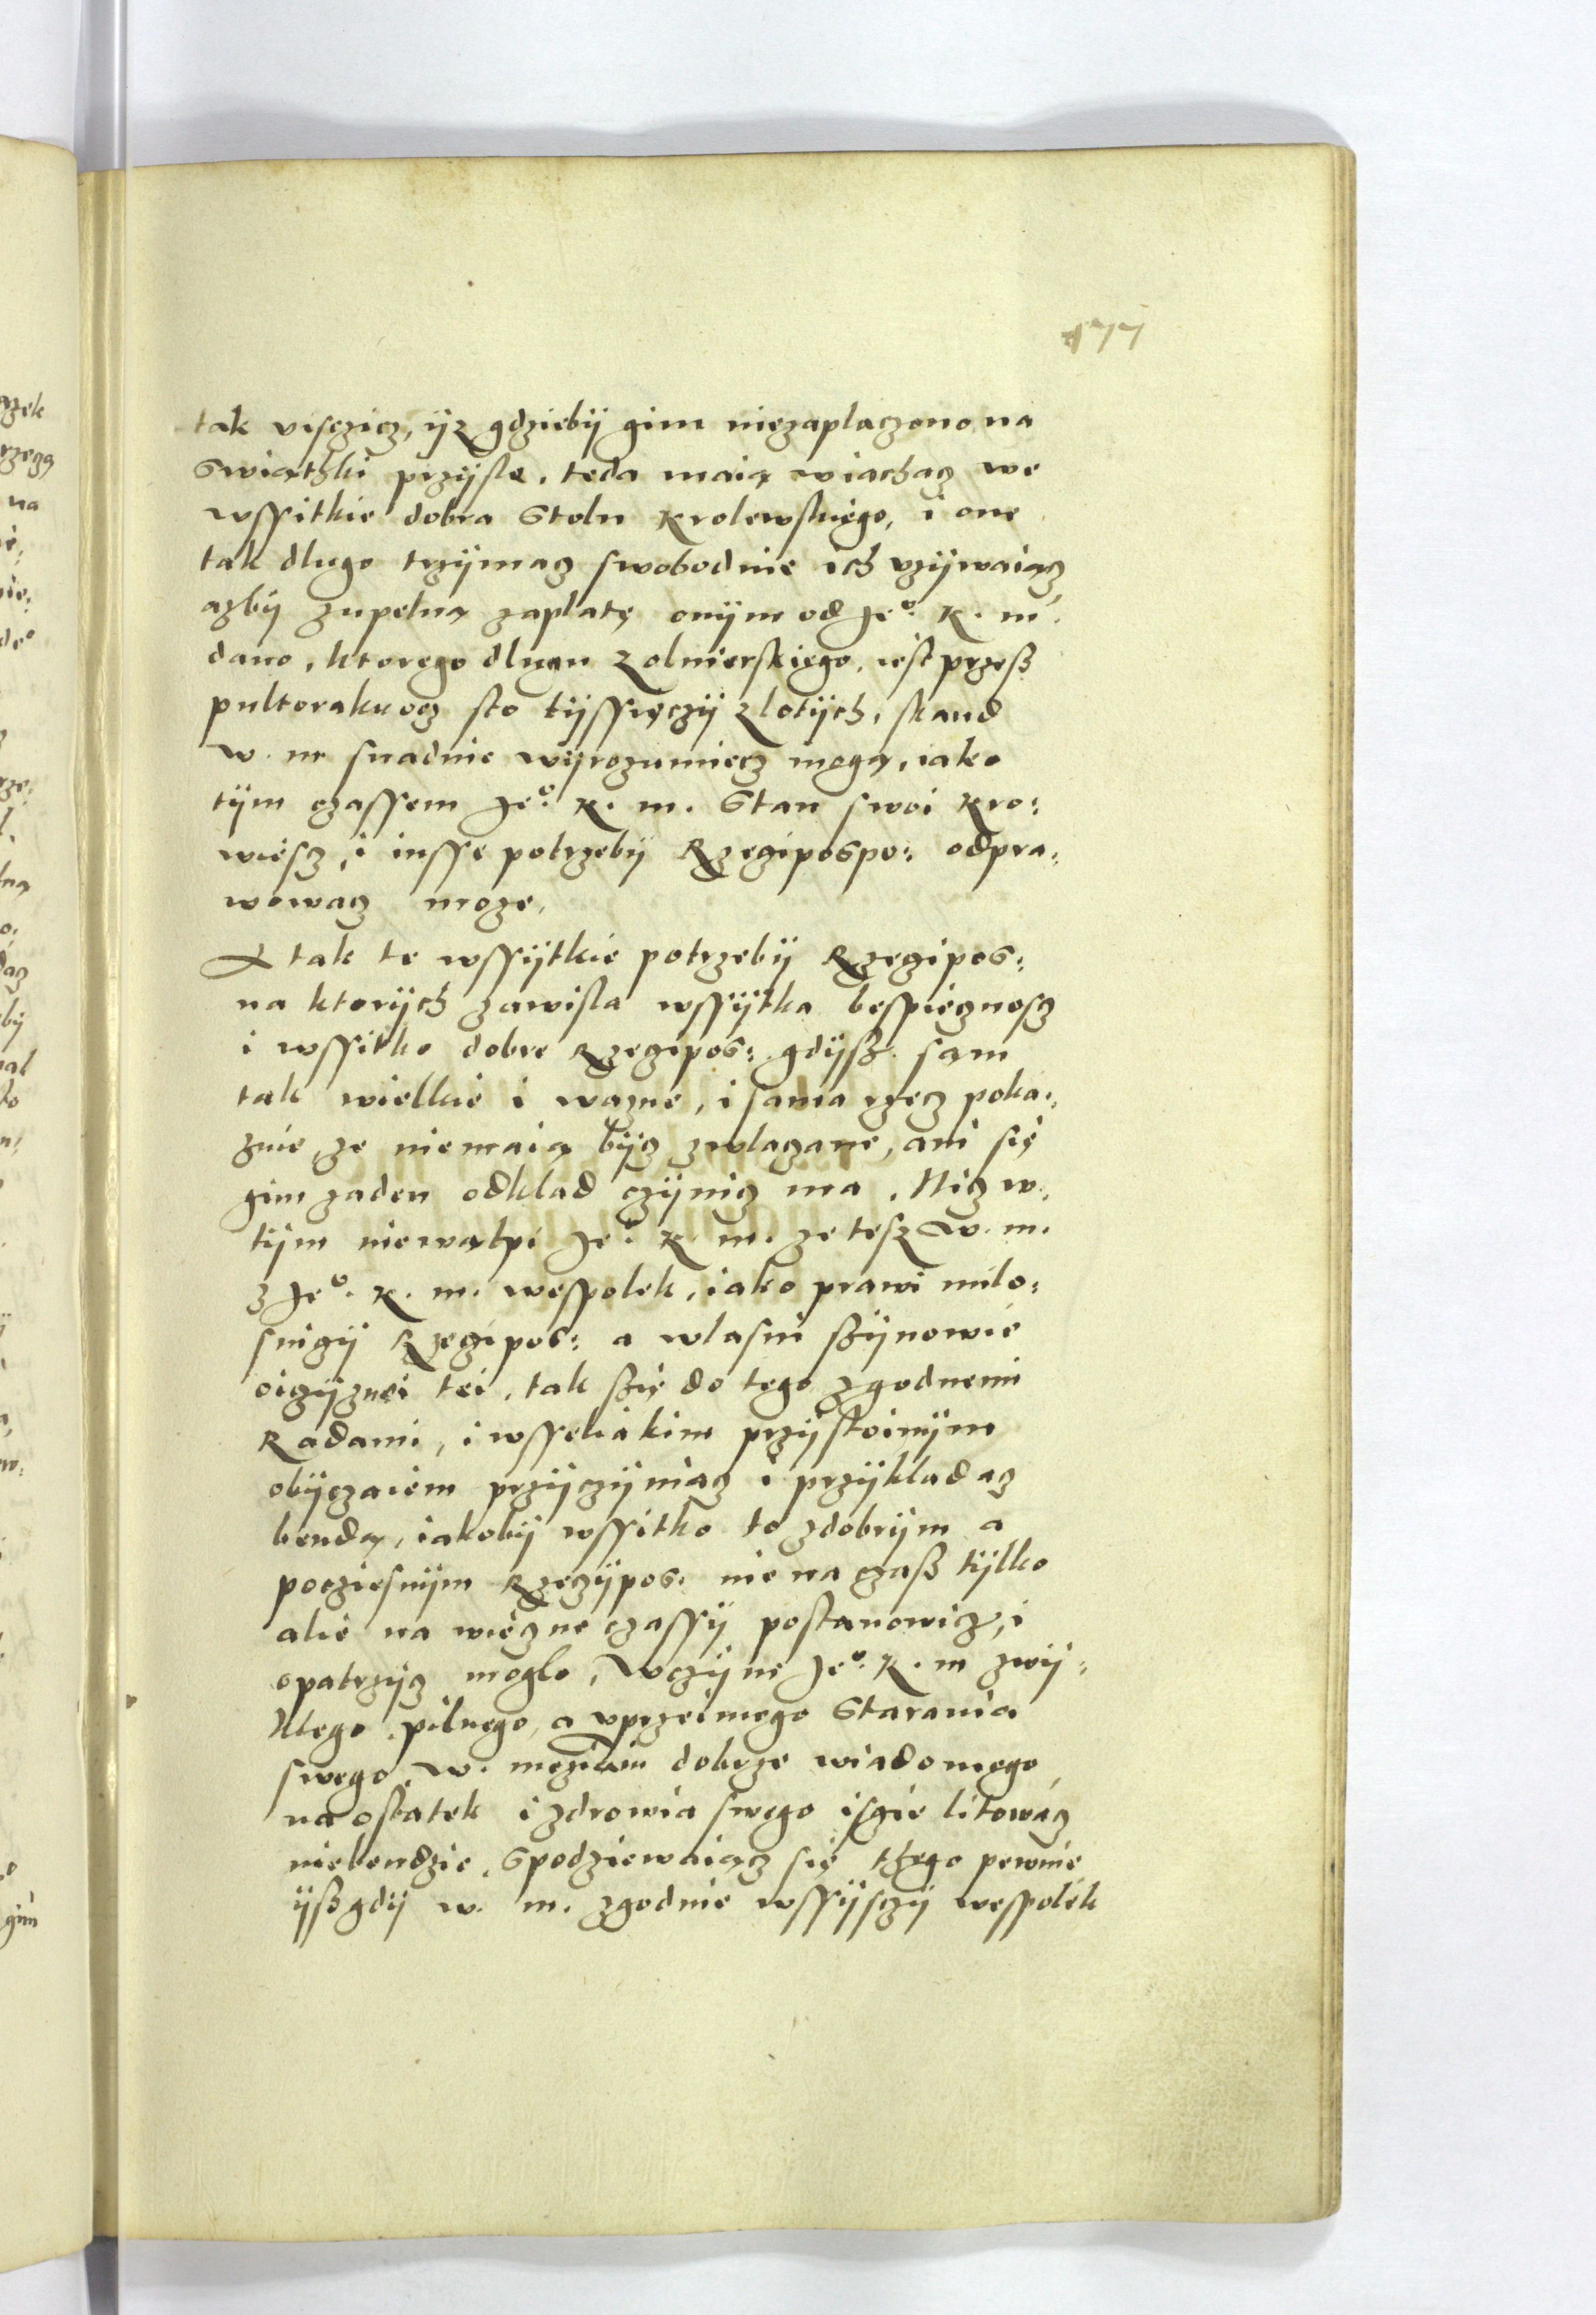 177
tak visczicz, ÿz gdziebÿ gim niezaplaczono na
Swiathki przÿsle, teda maią wiachacz we
wssitkie dobra Stolu Krolewskiego, i one
tak dlugo trzÿmacz swobodnie ich vzÿwaiącz
azbÿ zupelną zaplatę onÿm od Je°. K. m.
dano, ktorego dlugu Zolnierskiego, iest przesz
pultorakrocz sto tÿssięczÿ Zlotÿch, skand
w. m snadnie wÿrozumiecz mogą, iako
tÿm czassem Je°. K. m. Stan swoi kro:
wiesz, i insse potrzebÿ Rzeczipospo: odpra:
wowacz moze.
A tak te wssÿtkie potrzebÿ Rzeczipos:
na ktorÿch zawisla wssÿtka bespiecznosz
i wssitko dobre Rzeczipos: gdÿsz sam
tak wielkie i wazne, i sama rzecz poka:
zuie, ze niemaią bÿcz zwlaczane, ani się
gim zaden odklad czÿnicz ma. Nicz w:
tÿm niewątpi Je°. K. m. ze tesz w. m.
z Je°. K. m. wespolek, iako prawi milo:
sniczÿ Rzeczipos: a wlasni szÿnowie
oiczÿznei tei, tak szię do tego zgodnemi
Radami, i wsseliakim przÿstoinÿm
obÿczaiem przÿczÿniacz i przÿkladacz
bendą, iakobÿ wssitko to zdobrÿm a
pocziesnÿm Rzeczÿpos. nie na czasz tÿlko
alie na wieczne czassÿ postanowicz, i
opatrzÿcz moglo, Wczÿm Je°. K. m zwÿ:
klego pilnego, a vprzeimego Starania
swego, w. mcziam dobrze wiadomego
na ostatek i zdrowia swego iscie litowacz
niebendzie, Spodziewaiącz się tego pewnie
ÿsz gdÿ w. m. zgodnie wssÿsczÿ wespolek